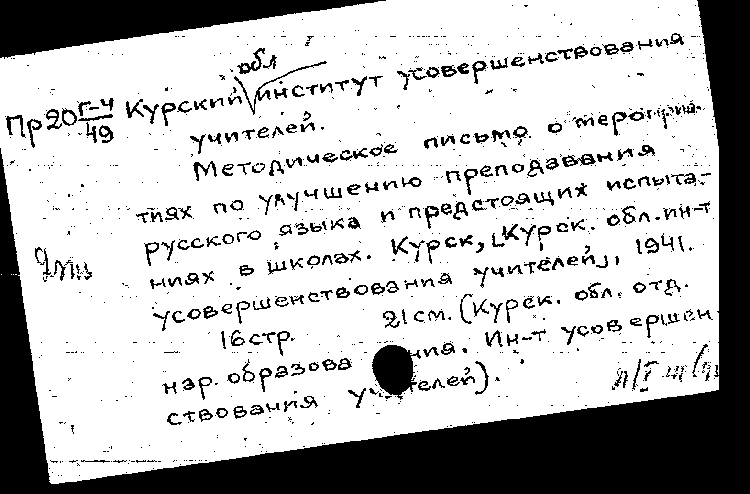 обл
Пр20 Г-4/49 Курский институт усовершенствования
учителей.
Методическое письмо о мероприя-
тиях по улучшению преподавания
русского языка и предстоящих испыта-
ниях в школах. Курск, [Курск. обл. ин-т
усовершенствования учителей], 1941.
16 стр. 21 см. (Курск. обл. отд.
нар. образования. Ин-т усовершен
ствования учителей).